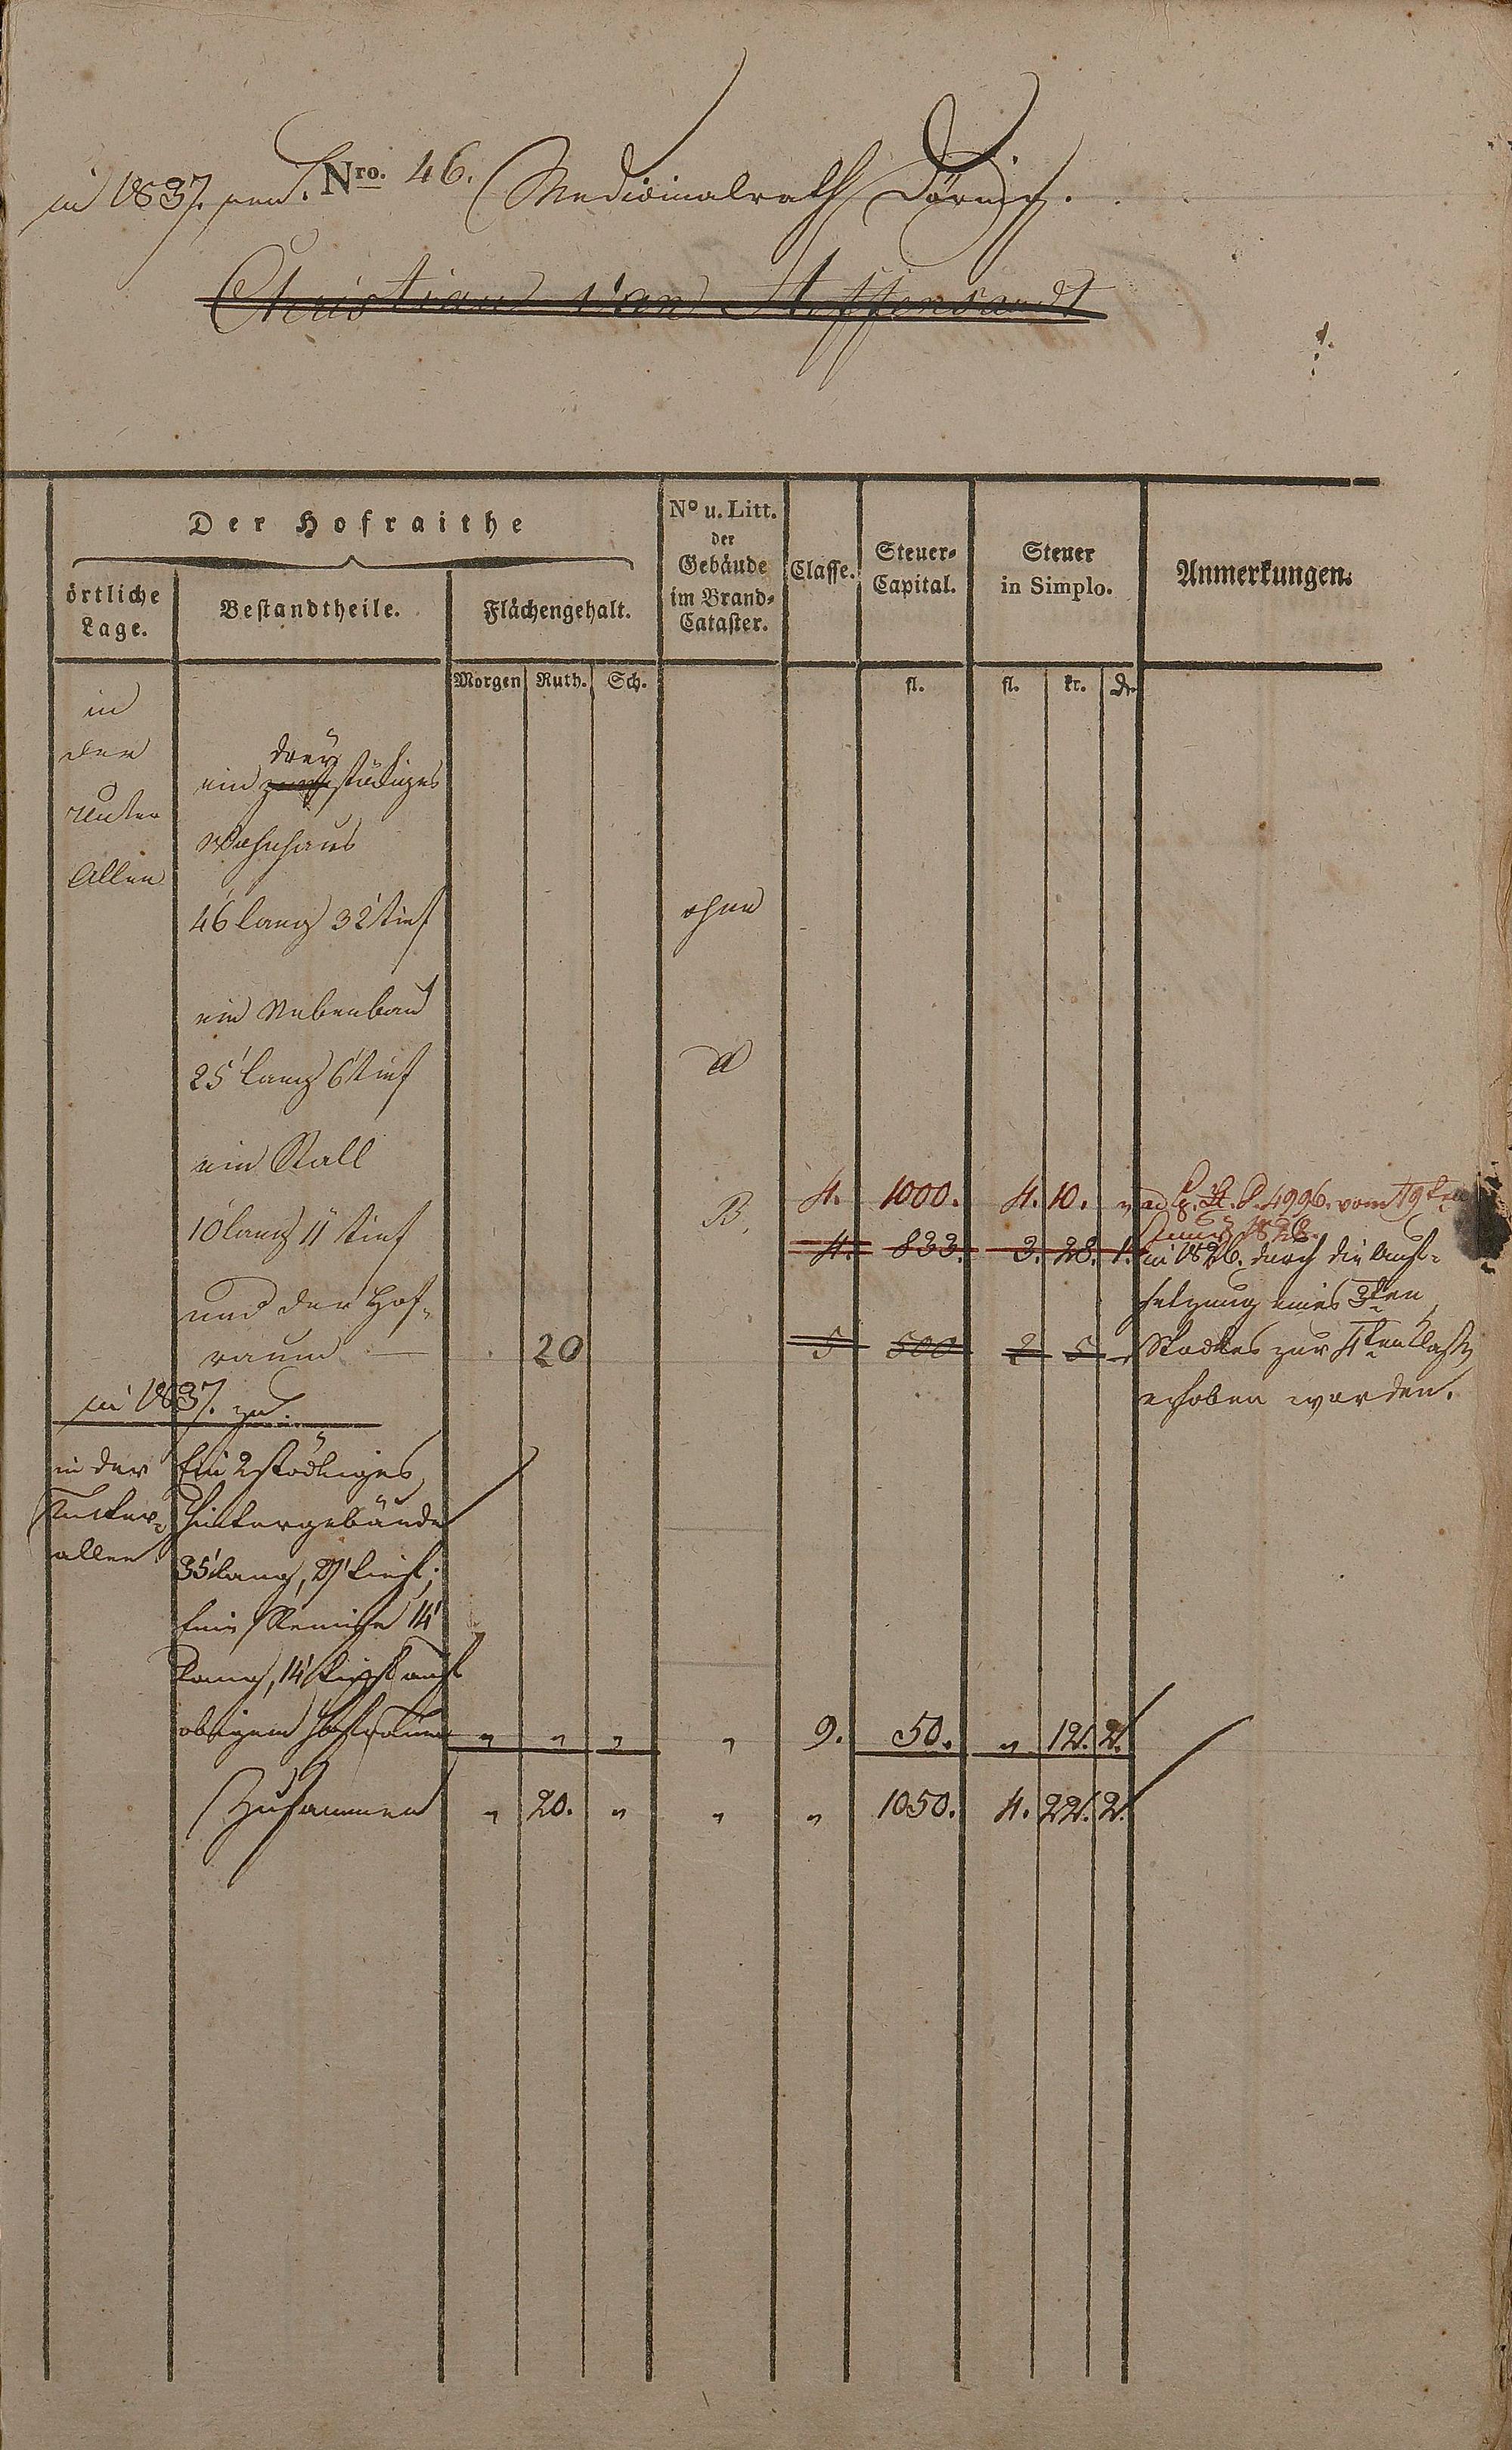 in 1837. Nro. 46. Medicinalrath Döring.
Christian van Haffenrandt
Der Hofraithe
örtliche Lage.
Bestandtheile.
Flächengehalt.
No u. Litt. der Gebäude im Brand-Cataster.
Classe.
Steuer-Capital.
Steuer in Simplo.
Anmerkungen.
Morgen Ruth. Sch. fl. fl. kr. d.
in
der
Allee
drey
ein stöckiges
Wohnhaus
46' lang 32' tief ohne
ein Nebenbau
25' lang 6' tief A
ein Stall
10' lang 11' tief B. 4. 1000. 4. 10. „ ad St. P. 4996. vom 19ten
1828.
4. 833. 3. 28. 1. in 1826. durch die Auf-
und der Hof- setzung eines 3ten
raum — 20 5 500 2 5 - Stockes zur 4ten Classe
erhoben worden.
in 1837. zu.
in der Ein 2stöckiges
Hintergebäude
allee 35' lang, 27' tief;
Eine Remise 14'
lang, 14' tief auf
obigem Hofraum „ „ „ „ 9. 50. „ 12. 2.
Zusammen „ 20. „ „ „ 1050. 4. 22. 2.